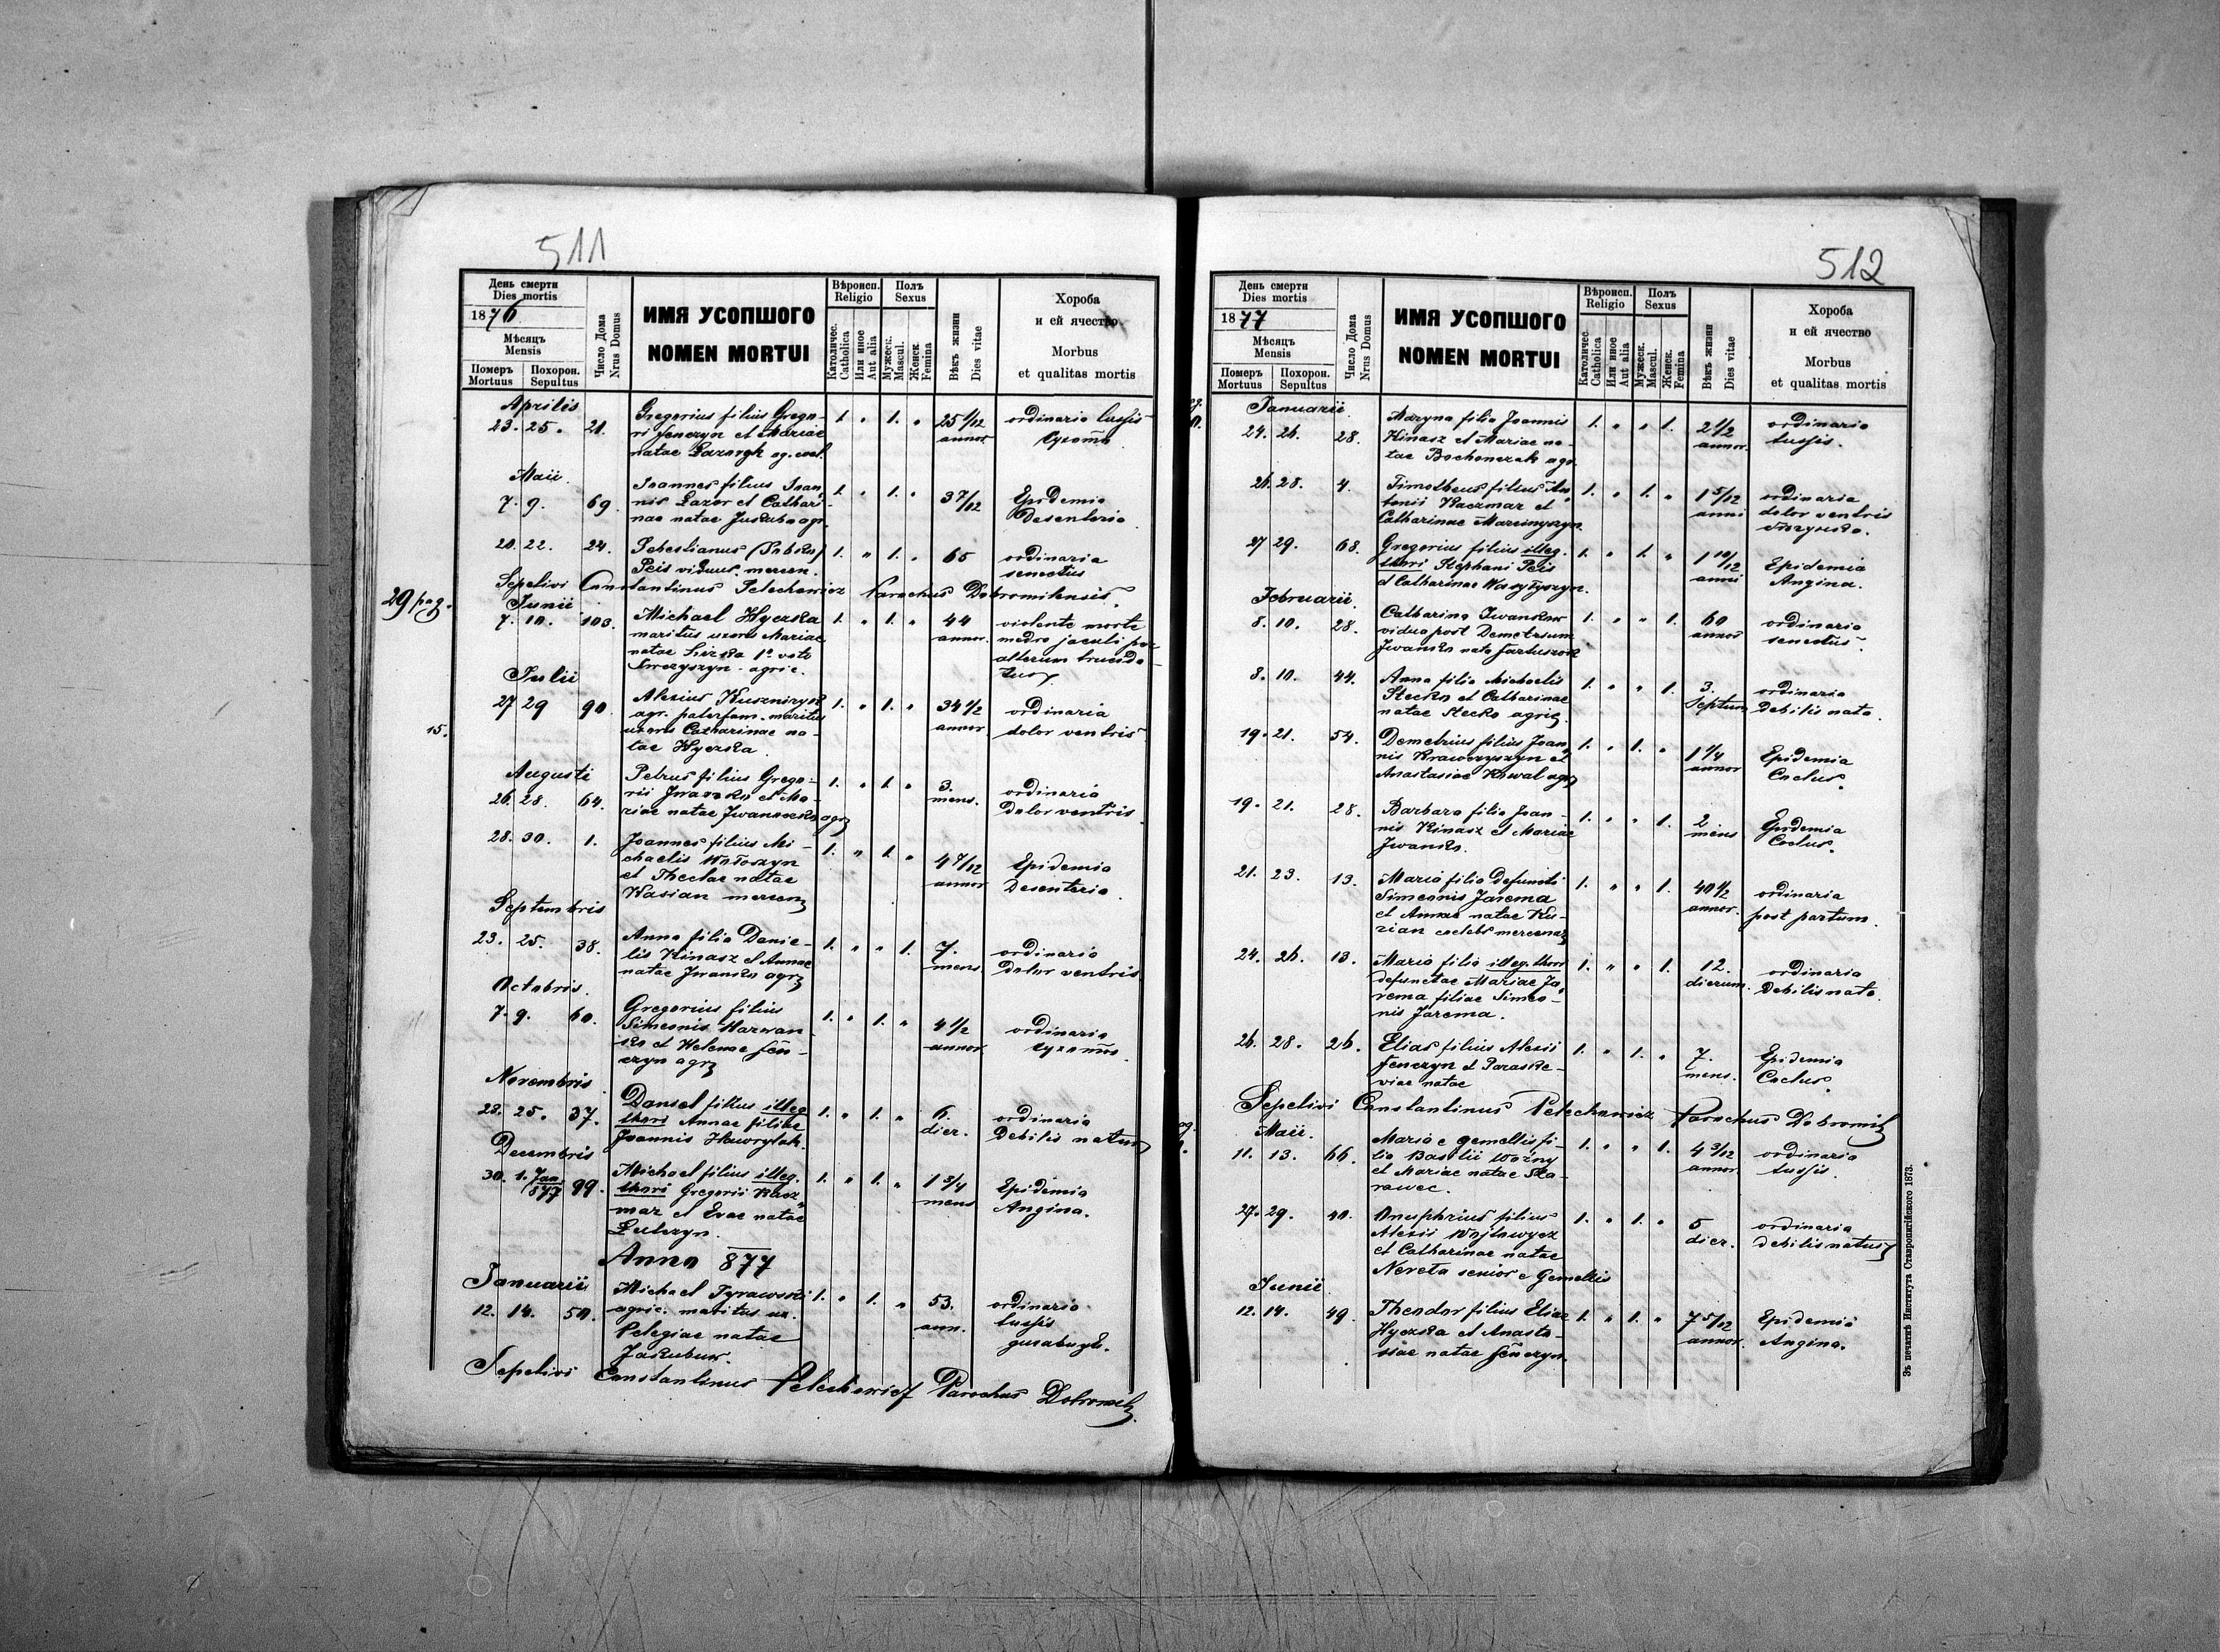 511
День смерти
Dies mortis
1876
Мѣсяцъ
Mensis
Померъ Mortuus
Похорон. Sepultus
Число Дома
Nrus Domus
ИМЯ УСОПШОГО
NOMEN MORTUI
Вѣроисп.
Religio
Католичес.
Catholica
Или иное
Aut alia
Полъ
Sexus
Мужеск.
Mascul.
Женск.
Femina
Вѣкъ жизни
Dies vitae
Хороба
и ей ячество
Morbus
et qualitas mortis
Aprilis
23. 25. 21. Gregorius filius Grego- 1. " 1. " 25 1/12 ordinaria tussis
ri Senczyn et Mariae annor
natae
Maii
7. 9. 69. Joannes filius Joan- 1. " 1. " 3 7/12 Epidemia
nis Lazor et Cathari- Desenteria
nae natae agr.
20. 22. 24. Sebestianus 1. " 1. " 65 ordinaria
Peis viduus mercen. senectus
Sepelivi Constantinus Pelechowicz Parochus Dobromilensis
29 pag.
Junii
7. 10. 103. Michael Hyczka 1. " 1. " 44 violente morte
maritus uxoris Mariae annor.
natae 1º voto alterum trucida-
agric. tus
Julii
27 29 90. Alexius Kuszniryk 1. " 1. " 34 1/2 ordinaria
agr. paterfam. maritus annor dolor ventris
15.
uxoris Catharinae na-
tae Hyczka
Augusti
26. 28. 64. Petrus filius Grego- 1. " 1. " 3. ordinaria
rii Iwansko et Ma- mens. Dolor ventris
riae natae agr
28. 30. 1. Joannes filius Mi- 1. " 1. " 4 7/12 Epidemia
chaelis Wołoszyn annor Desenteria
et Theclae natae
Wasian mercen
Septembris
23. 25. 38. Anna filia Danie- 1. " " 1. 7. ordinaria
lis Kinasz et Annae mens Dolor ventris
natae Iwansko agr
Octobris
7. 9. 60. Gregorius filius 1. " 1. " 4 1/2 ordinaria
Simeonis annor
et Helenae Sen-
czyn agr
Novembris
23. 25. 37. Daniel filius illeg. 1. " 1. " 6. ordinaria
thori Annae filiae dier. Debilis natus
Joannis Hawrylak.
Decembris
30. 1. Jan 877 99. Michael filius illeg. 1. " 1. " 1 3/4 Epidemia
thori Gregorii Kacz- mens Angina.
mar et Evae natae
Anno 877
Januarii
12. 14. 50. Michael Tyrawski 1. " 1. " 53. ordinaria
agric. maritus ux. ann. tussis
Pelegiae natae
Jakubow.
Sepelivi Constantinus Pelechowicz Parochus Dobromil
512
День смерти
Dies mortis
1877
Мѣсяцъ
Mensis
Померъ Mortuus
Похорон. Sepultus
Число Дома
Nrus Domus
ИМЯ УСОПШОГО
NOMEN MORTUI
Вѣроисп.
Religio
Католичес.
Catholica
Или иное
Aut alia
Полъ
Sexus
Мужеск.
Mascul.
Женск.
Femina
Вѣкъ жизни
Dies vitae
Хороба
и ей ячество
Morbus
et qualitas mortis
Januarii
24. 26. 28. Maryna filia Joannis 1. " " 1. 2 1/2 ordinaria
Kinasz et Mariae na- annor. tussis.
tae Bochonczak agr.
26. 28. 4. Timotheus filius An- 1. " 1. " 1 5/12 ordinaria
tonii Kaczmar et anni dolor ventris
Catharinae Marcinyszyn
27 29. 68. Gregorius filius illeg. 1. " 1. " 1 10/12 Epidemia
thori Stephani Peis anni Angina.
et Catharinae Wasylyszyn.
Februarii
8. 10. 28. Catharina Iwansko 1. " " 1. 60 ordinaria
vidua post Demetrium annor senectus
Iwansko nata
8. 10. 44. Anna filia Michaelis 1. " " 1. 3. ordinaria
Stecko et Catharinae Septim Debilis nata.
natae Stecko agric
19. 21. 54. Demetrius filius Joan- 1. " 1. " 1 1/4 Epidemia
nis Krawczyszyn et annor Coclus
Anastasiae Kowal agr
19. 21. 28. Barbara filia Joan- 1. " " 1. 2 Epidemia
nis Kinasz et Mariae mens Coclus.
Iwansko.
21. 23. 13. Maria filia defuncti 1. " " 1. 40 1/2 ordinaria
Simeonis Jarema annor. post partum.
et Annae natae Ku-
rian coelebs mercenar
24. 26. 13. Maria filia illeg. thori 1. " " 1. 12. ordinaria
defunctae Mariae Ja- dierum. Debilis nata.
rema filiae Simeo-
nis Jarema.
26. 28. 26. Elias filius Alexii 1. " 1. " 7. Epidemia
Senczyn et Paraske- mens. Coclus.
viae natae
Sepelivi Constantinus Pelechowicz Parochus Dobromil
Maii.
11. 13. 66. Maria e gemellis fi- 1. " " 1. 4 3/12 ordinaria
lia Basilii Woźny annor. tussis.
et Mariae natae Ska-
rawec.
27. 29. 40. Onuphrius filius 1. " 1. " 5 ordinaria
Alexii Wojtowycz dier. debilis natus
et Catharinae natae
Nereta senior e Gemellis
Junii
12. 14. 49. Theodor filius Eliae 1. " 1. " 7 5/12 Epidemia
Hyczka et Anasta- annor. Angina.
siae natae Senczyn.
Зъ печатнѣ Института Ставропигійского 1873.